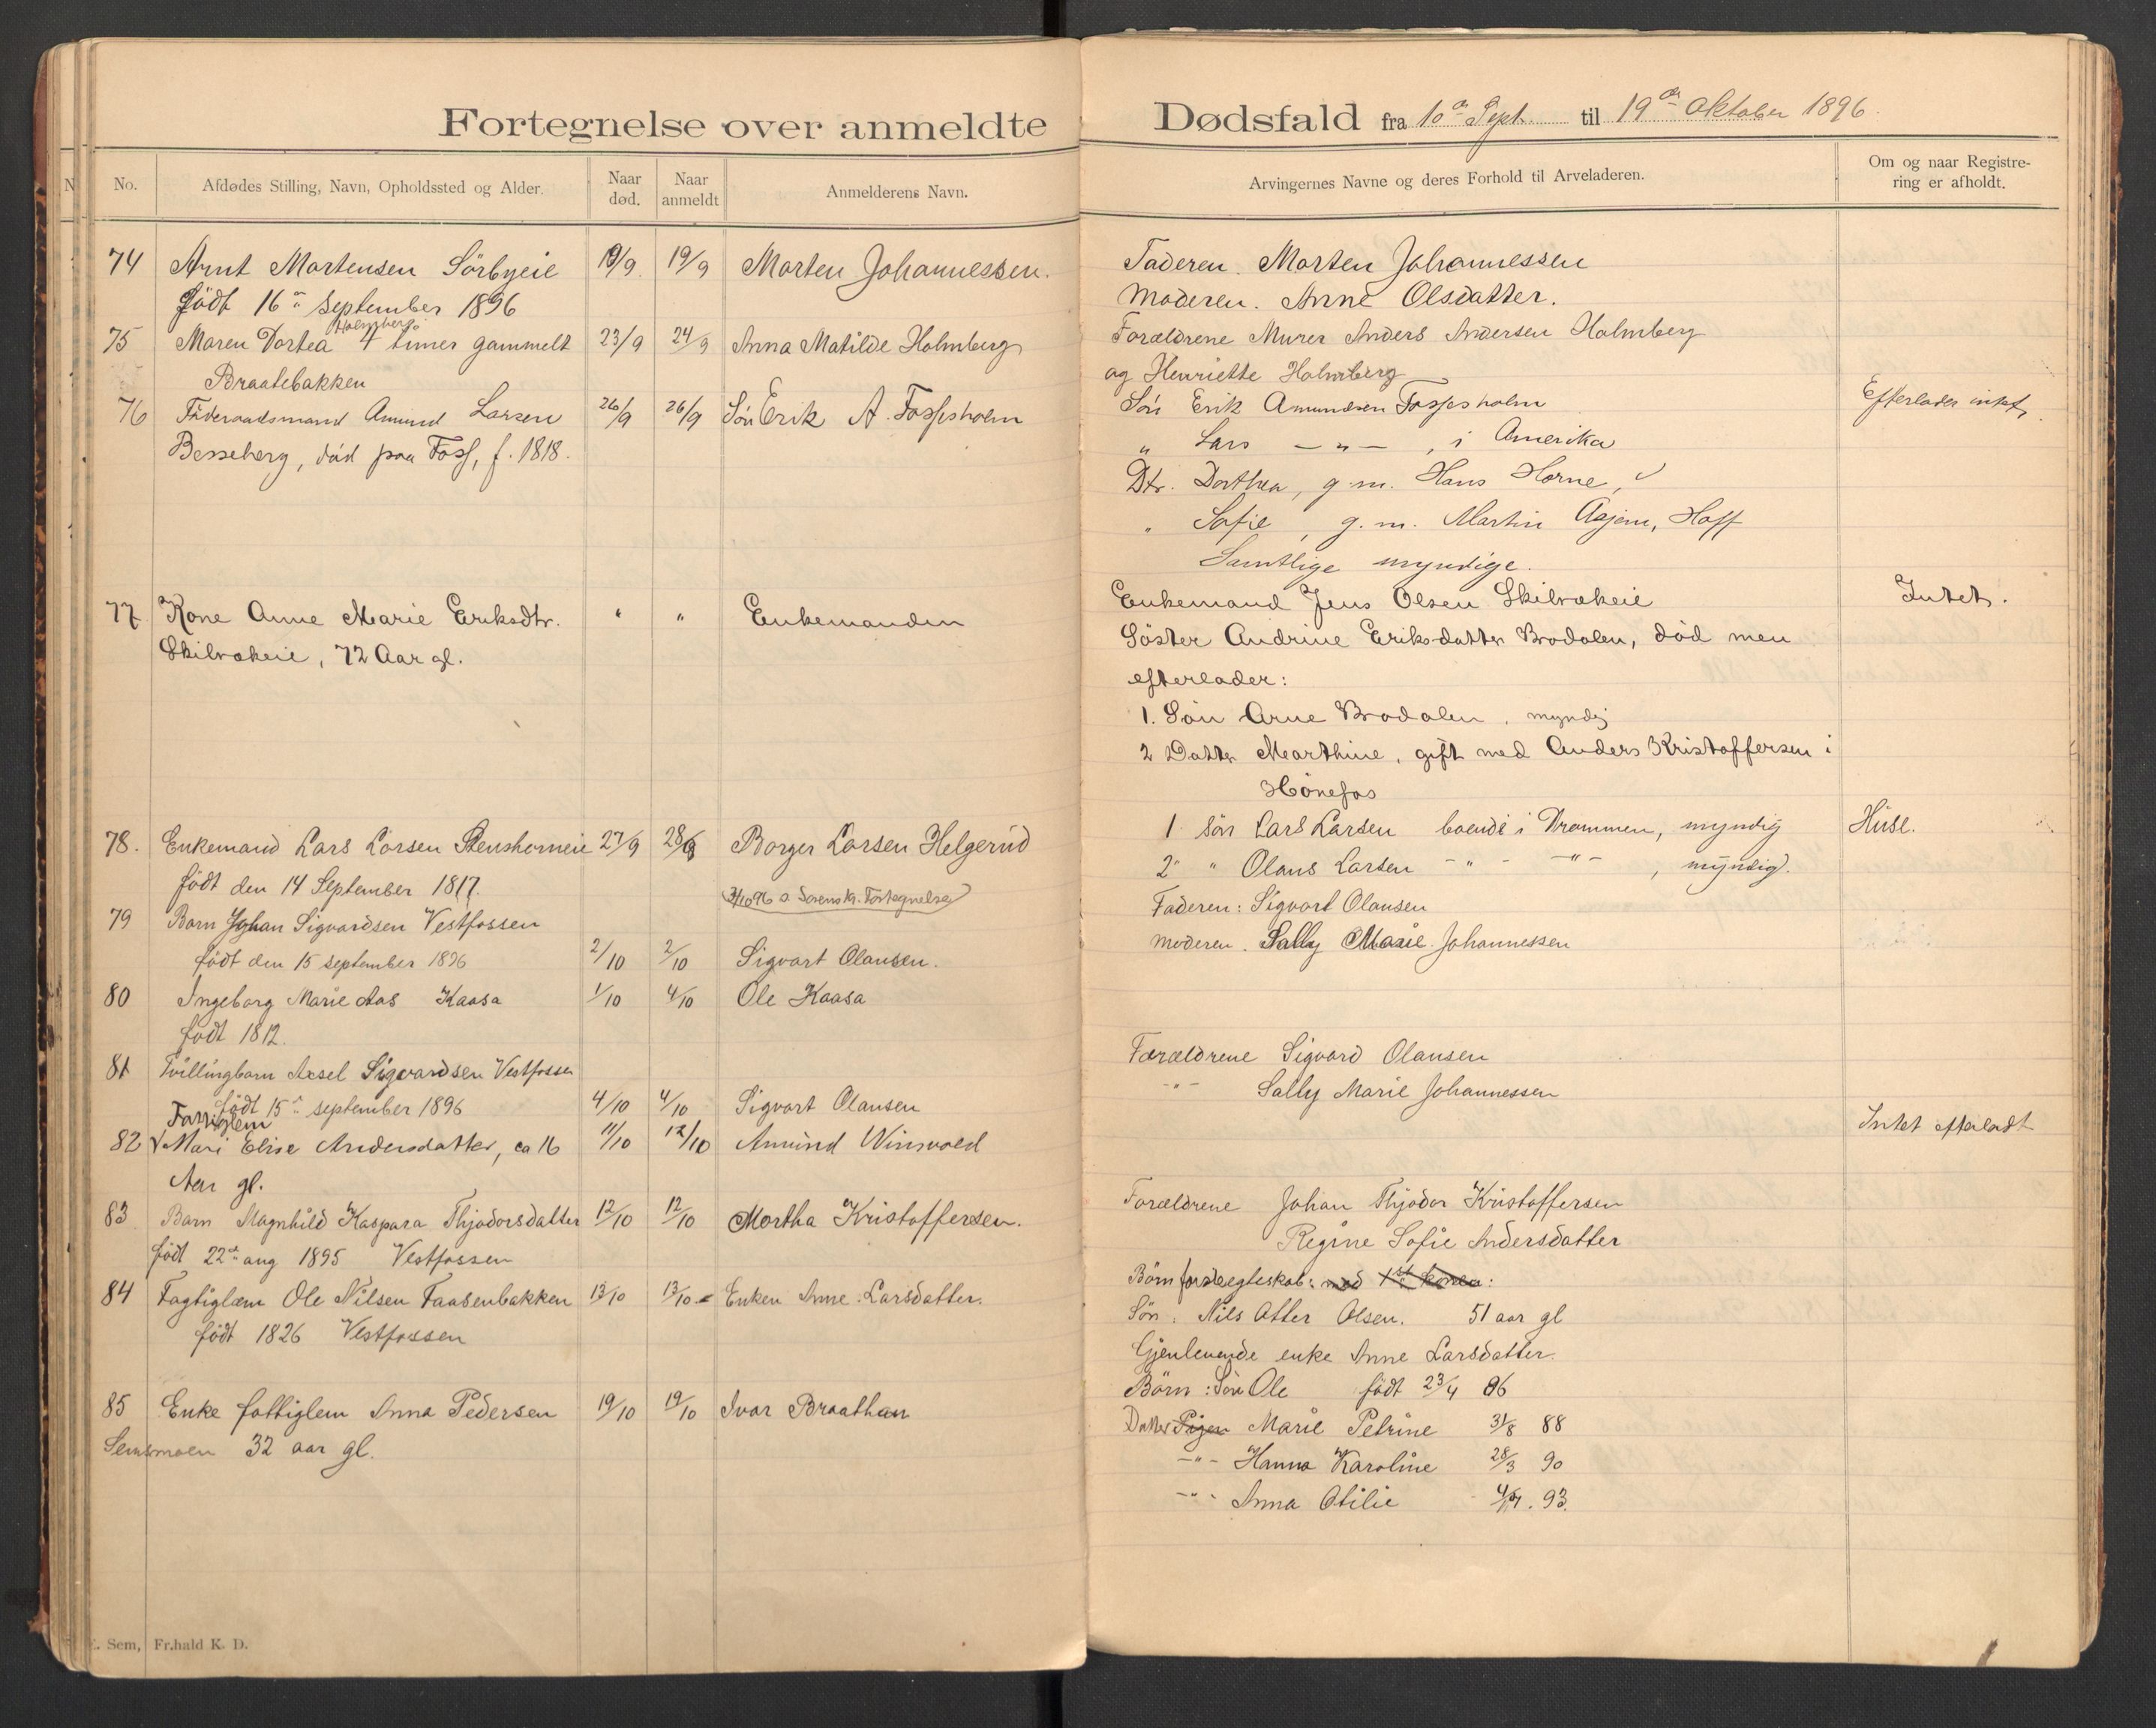 Fortegnelse over anmeldte
No.
Afdødes Stilling, Navn, Opholdssted og Alder.
Naar død.
Naar anmeldt
Anmelderens Navn.
74 Arnt Martensen Sörbyeie 19/9 19/9 Morten Johannessen.
født 16de September 1896
Holmberg
75 Maren Dortea 4 timer gammelt 23/9 24/9 Anna Matilde Holmberg
Braatebakken
76 Föderaadsmand Amund Larsen 26/9 26/9 Sön Erik A. Fossesholm
Besseberg, död paa Foss, f. 1818.
77 Kone Anne Marie Eriksdtr. " " Enkemanden
Skilvokeie, 72 Aar gl.
78. Enkemand Lars Larsen Stenshorneie 27/9 28/9 Borger Larsen Helgerud
født den 14 September 1817.
3/10 96 s. Sorenskr. Fortegnelse
79 Barn Johan Sigvardsen Vestfossen
født den 15 september 1896 2/10 2/10 Sigvart Olausen.
80 Ingeborg Marie Aas Kaasa 1/10 4/10 Ole Kaasa
født 1812.
81 Tvillingbarn Axsel Sigvardsen Vestfossen
født 15de september 1896 4/10 4/10 Sigvart Olausen
Fattiglem
82 Mari Elise Andersdatter, ca 16 11/10 12/10 Amund Winsvold
Aar gl.
83 Barn Magnhild Kaspara Thjodorsdatter 12/10 12/10 Martha Kristoffersen.
født 22de aug 1895 Vestfossen
84 Fagtiglæm Ole Nilsen Faasenbakken 13/10 13/10 Enken Anne Larsdatter.
født 1826 Vestfossen
85 Enke fattiglem Anna Pedersen 19/10 19/10 Ivar Braathan
Semsmoen 32 aar gl.
Sem, Fr.hald K. D.
Dødsfald fra 10de Sept. til 19de Oktober 1896.
Arvingernes Navne og deres Forhold til Arveladeren.
Om og naar Registrering er afholdt.
Faderen. Morten Johannessen
Moderen. Anne Olsdatter.
Forældrene Murer Anders Andersen Holmberg
og Henriette Holmberg
Sön Erik Amundsen Fossesholm Efterlader intet,
" Lars — " — , i Amerika
Dtr. Dorthea, g.m. Hans Horne,
" Sofie, g.m. Martin Aasjem, Hoff
Samtlige myndige.
Enkemand Jens Olsen Skilvokeie Intet.
Söster Andrine Eriksdatter Brodalen, död men
efterlader:
1. Sön Arne Brodalen, myndig
2 Datter Marthine, gift med Anders Kristoffersen i
Hönefos
1. Sön Lars Larsen boende i Drammen, myndig Huse.
2" " Olaus Larsen - " - - " - , myndig.
Faderen: Sigvart Olausen
Moderen. Sally Marie Johannessen
Forældrene Sigvard Olausen
- " - Sally Marie Johannessen
Intet efterladt
Forældrene Johan Thjodor Kristoffersen
Regine Sofie Andersdatter
Börn for ægteskab: med 1ste kone:
Sön. Nils Otter Olsen. 51 aar gl
Gjenlevende enke Anne Larsdatter.
Börn: Sön Ole født 23/4 86
Datter Pigen Marie Petrine 31/8 88
- " - Hanna Karoline 28/3 90
- " - Anna Otilie 4/7. 93.